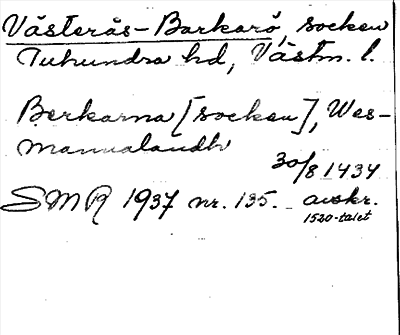 Västerås-Barkarö, socken
Tuhundra hd, Västm. l.
Berkarna [socken], Wes-
mannalandh
30/8 1434
SMR 1937 nr. 135. avskr.
1520-talet